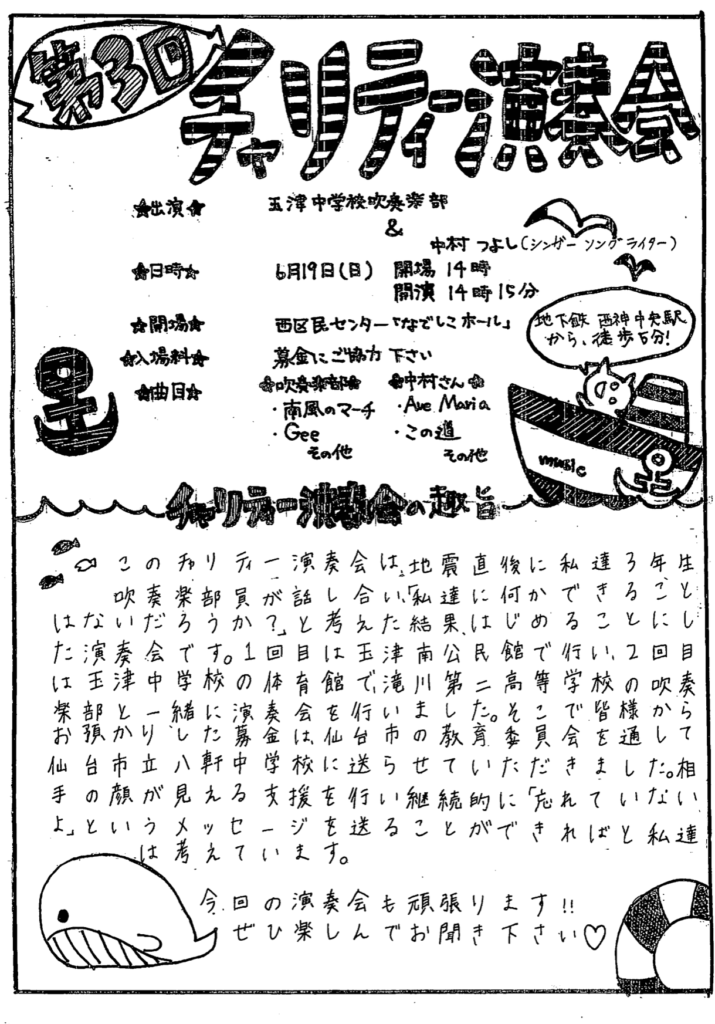 第3回
チャリティー演奏会
☆出演☆ 玉津中学校吹奏楽部
&
中村 つよし(シンガー ソング ライター)
☆日時☆ 6月19日(日) 開場 14時
開演 14時15分
☆開場☆ 西区民センター「なでしこホール」
地下鉄 西神中央駅
から、徒歩5分!
☆入場料☆ 募金にご協力 下さい
☆曲目☆ ☆吹奏楽部☆ ☆中村さん☆
・南風のマーチ ・Ave Maria
・Gee ・この道
その他 その他
music
チャリティー演奏会の趣旨
このチャリティー演奏会は、地震直後に私達3年生
吹奏楽部員が話し合い、「私達に何かできること
はないだろうか?」と考えた結果、はじめることにし
た演奏会です。1回目は玉津南公民館で行い、2回目
は玉津中学校の体育館で、滝川第二高等学校の吹奏
楽部と一緒に演奏会を行いました。そこで皆様から
お預かりした募金は、仙台市の教育委員会を通して
仙台市立八軒中学校に送らせていただきました。相
手の顔が見える支援を行い継続的に「忘れていない
よ」というメッセージを送ることができればと私達
は考えています。
今回の演奏会も頑張ります!!
ぜひ楽しんでお聞き下さい♡